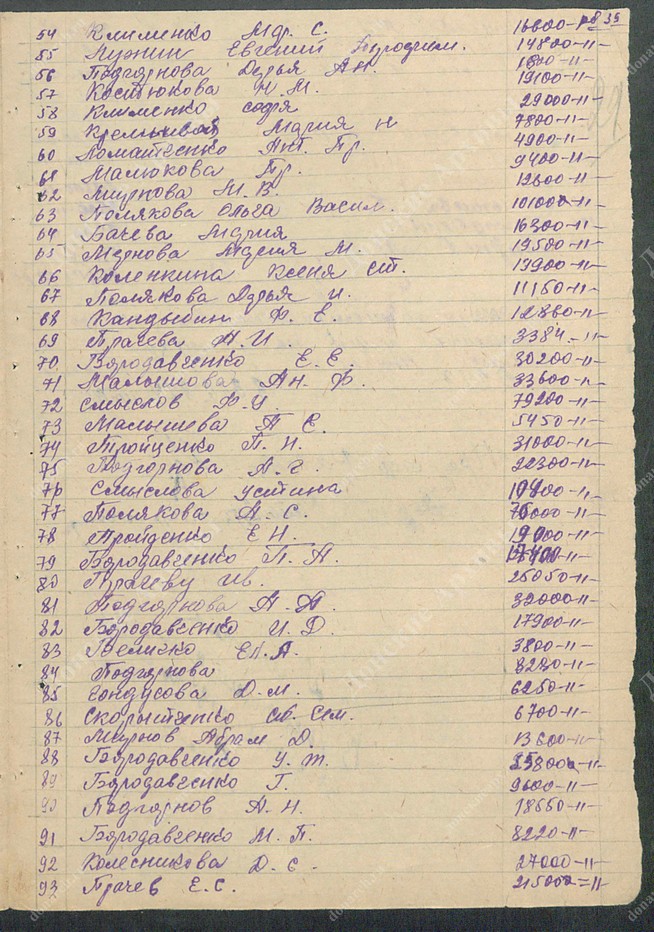 54 Клименко Мар. С. 16600-рв 35
55 Мужик Евгений Бородким. 14800-"-
56 Подгорнова Дарья Ан. 1800-"-
57 Костюкова Н. М. 19100-"-
58 Клименко Софя 29000-"-
59 Кремливой Мария Н 7800-"-
60 Ломатченко Ант. Пр. 4900-"-
61 Малюкова Пр. 9400-"-
62 Мирнова М. В. 12600-"-
63 Полякова Ольга Васил. 101000-"-
64 Бачева Мария 16300-"-
65 Мирнова Мария М. 19500-"-
66 Коленкина Ксеня ст. 19900-"-
67 Полякова Дарья И. 11150-"-
68 Кандыбин Ф. Е. 12860-"-
69 Прачева А. И. 3384.-"-
70 Бородавченко Е. Е. 30200-"-
71 Малышова Ан. Ф. 33600-"-
72 Смыслов Ф. И. 79200-"-
73 Малышева П Е. 5450-"-
74 Тройценко П. Н. 31000-"-
75 Подгорнова А. Г. 22300-"-
76 Смыслова Устина 10900-"-
77 Полякова А. С. 76000-"-
78 Тройценко Е Н. 19000-"-
79 Бородавченко П. А.
80 Прачеву Ив. 25050-"-
81 Подгорнова А. А. 32000-"-
82 Бородавченко И. Д. 17900-"-
83 Величко Ел. А. 3800-"-
84 Подгорнова 8280-"-
85 Гондусова Д. М. 6250-"-
86 Скорытченко Ив. Сем. 6700-"-
87 Мирнов Абрам Д. 13600-"-
88 Бородавченко У. Т. 35800-"-
89 Бородавченко Г. 9600-"-
90 Подгорнов А. Н. 18550-"-
91 Бородавченко М. П. 8220-"-
92 Колесникова Д. С. 27000-"-
93 Прачев Е. С. 215000=-"